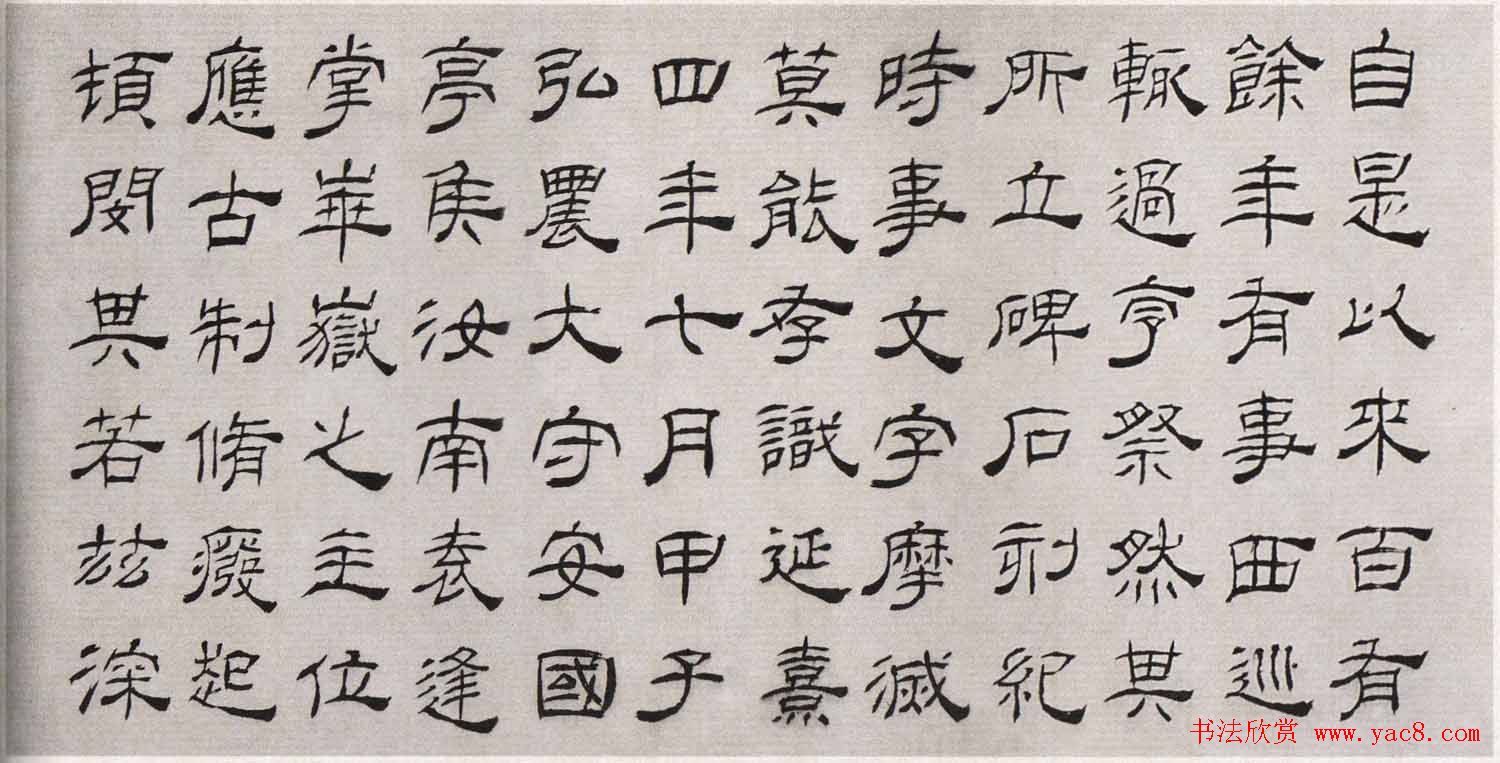 自是以來百有
餘年有事西巡
輒過亨祭然其
所立碑石刻紀
時事文字摩滅
莫能存識延熹
四年七月甲子
弘農大守安國
亭侯汝南袁逢
掌華嶽之主位
應古制脩癈起
頓閔其若茲深
书法欣赏 www.yac8.com